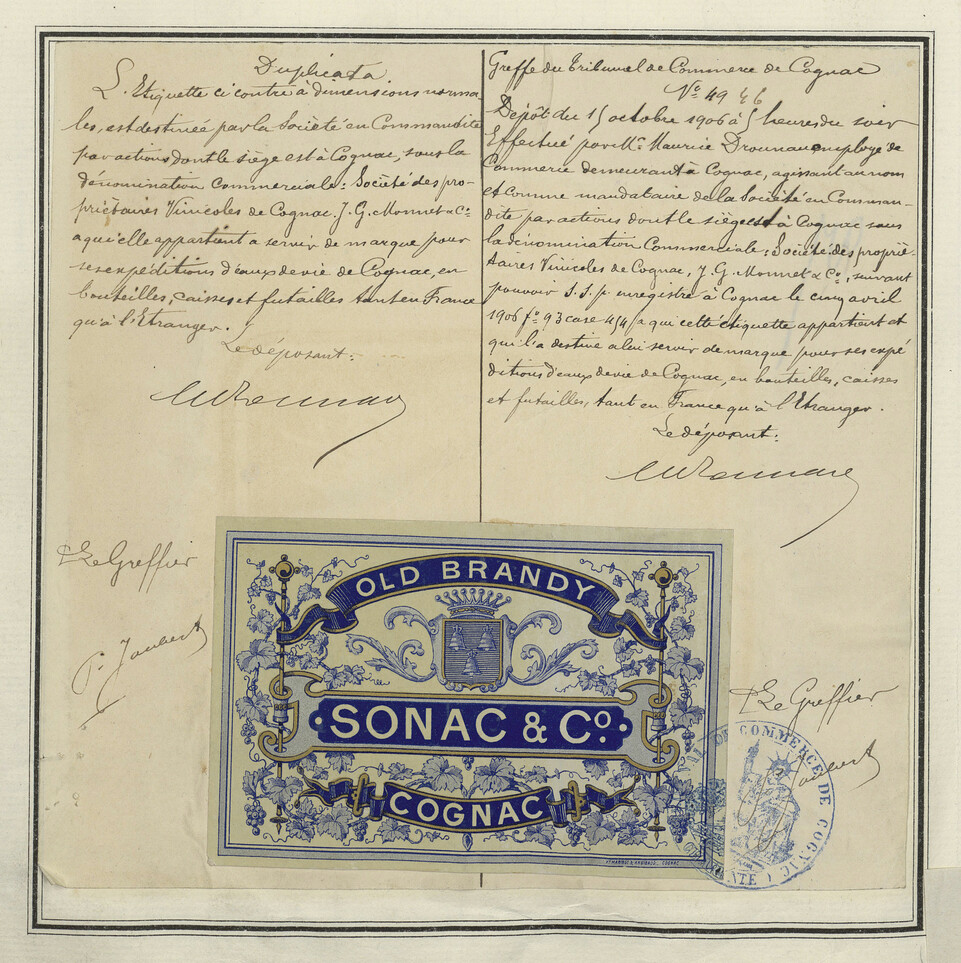 Duplicata.
L'Etiquette ci contre à dimensions norma-
les, est destinée par la Société en Commandite
par actions dont le siège est à Cognac, sous la
dénomination commerciale: Société des pro-
priétaires Vinicoles de Cognac. J. G. Monnet & Cº
a qui elle appartient a servir de marque pour
ses expéditions d'eaux de vie de Cognac, en
bouteilles, caisses et futailles tant en France
qu'à l'Etranger.
Le déposant:
Le Greffier
P. Joubert
Greffe du Tribunal de Commerce de Cognac
Nº 49 46
Dépôt du 15 octobre 1906 à 5 heures du soir
Effectué par Mr. Maurice Drounau employé de
Commerce demeurant à Cognac, agissant au nom
et comme mandataire de la Société en Comman-
dite par actions dont le siège est à Cognac sous
la dénomination Commerciale: Société des proprié-
taires Vinicoles de Cognac, J. G. Monnet & Cº, suivant
pouvoir S.S.p. enregistré à Cognac le cinq avril
1906 fº 93 case 454 a qui cette étiquette appartient et
qui l'a destine a lui servir de marque pour ses expé
ditions d'eaux de vie de Cognac, en bouteilles, caisses
et futailles, tant en France qu'à l'Etranger.
Le déposant:
Le Greffier
Joubert
OLD BRANDY
·SONAC & Cº.·
COGNAC
COGNAC
DE COMMERCE DE COGNAC